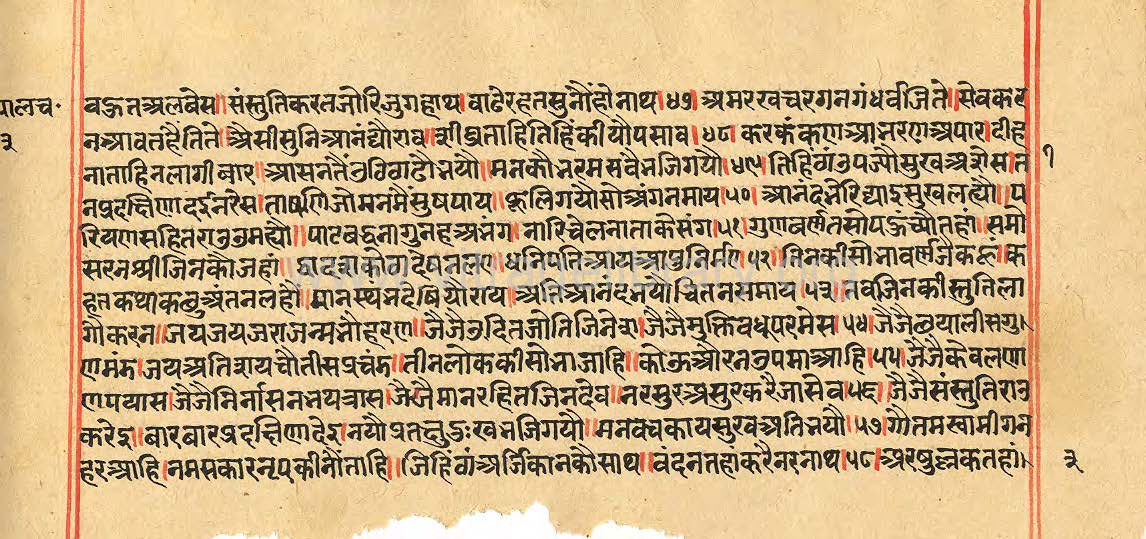 पालच॰
३
बऊतअलबेस॥ संस्तुतिकरतजोरिजुगहाथ॥ बाढेरहतसुनौंहोनाथ॥४७॥ अमरखचरगनगंधर्वजिते॥ सेवकर
नआवतहैतिते॥ अैसीसुनिआनंद्यौराव॥ शीघ्रताहितिहिंकीयौपसाव॥४८॥ करकंकणआभरणअपार॥ दीह
नाताहिनलागीबार॥ आसनतैंउठिठाढौभयौ॥ मनकौभरमसवैभजिगयौ॥४९॥ तिहिठांउपज्यौसुखअशेस॥ त
नप्रदक्षिणादईनरेस॥ ता णिजोमनमैंसुषपाय॥ फूलिगयौसोअंगनमाय॥५०॥ आनंदभेरिद्याइसुखलह्यौ॥ प
रियणसहितराउउमह्यौ॥ पाटबद्धनागुनहअभंग॥ नारिचेलनाताकेसंग॥५१॥ गुणवर्णतसोपऊंच्यौतहां॥ समो
सरनश्रीजिनकौजहां॥ धनिपतिआयआपुनिर्मए॥५२॥ तिनकीसोभावर्णैकहां॥ क
हतकथाकछुअंतनलहौं॥ मानस्थंभदेषियौराय॥ अतिआनंदभयौचितनसमाय॥५३॥ तवजिनकीस्तुतिला
गौकरन॥ जयजयजराजन्मभौहरण॥ जैजैउदितजोतिजिनेश॥ जैजैमुक्तिवधूपरमेस॥५४॥ जैजैछयालीसगु॥
णमंड॥ जयअतिशयचौतीसप्रचंड॥ तीनलोककीसोभाजाहि॥ कोऊऔरनउपमाआहि॥५५॥ जैजैकेवलणा
णपयास॥ जैजैनिर्नासनभयत्रास॥ जैजैमानरहितजिनदेव॥ नरसुरअसुरकरैजासेव॥५६॥ जैजैसंस्तुतिराउ
करेइ॥ बारबारप्रदक्षिणादेइ॥ भयौप्रतछदुःखभजिगयौ॥ मनवचकायसुखअतिभयौ॥५७॥ गौतमस्वामीगन
हरआहि॥ नमसकारनृपकीनौंताहि॥ जिहिंठांअर्जिकानकौसाथ॥ वंदनतहांकरैनरनाथ॥५८॥ अरषुल्लकतहां॥
३